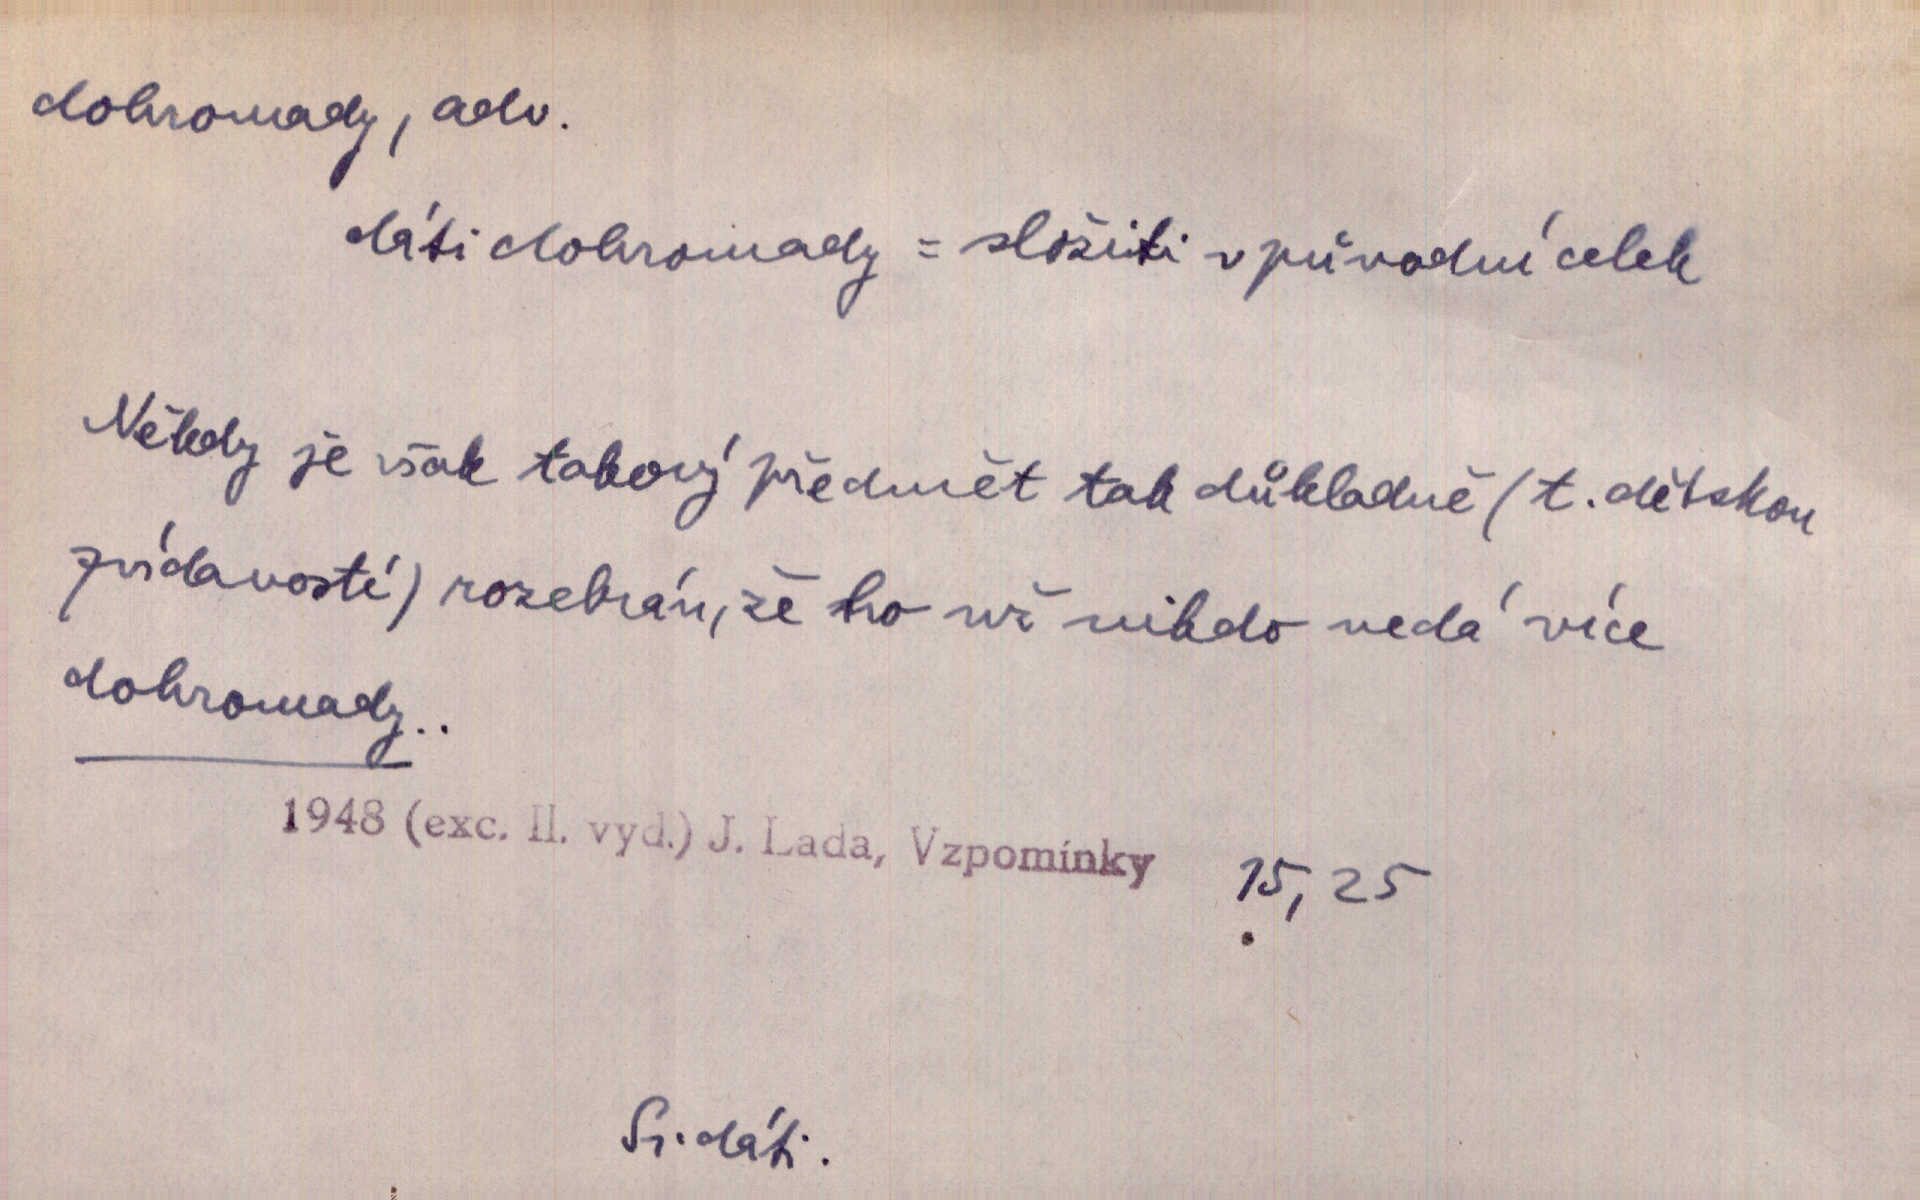 dohromady, adv.
dáti dohromady = složiti v původní celek
Někdy je však takový předmět tak důkladně (t. dětskou
zvídavostí) rozebrán, že ho už nikdo nedá více
dohromady..
1948 (exc. II. vyd.) J. Lada, Vzpomínky 15, 25
Sr. dáti.